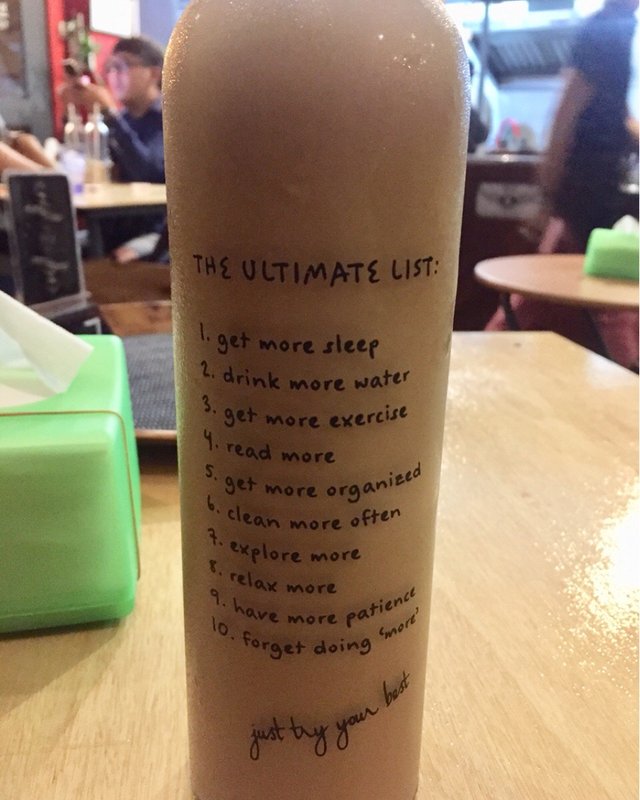 THE ULTIMATE LIST:
1. get more sleep
2. drink more water
3. get more exercise
4. read more
5. get more organized
6. clean more often
7. explore more
8. relax more
9. have more patience
10. forget doing 'more'
just try your best